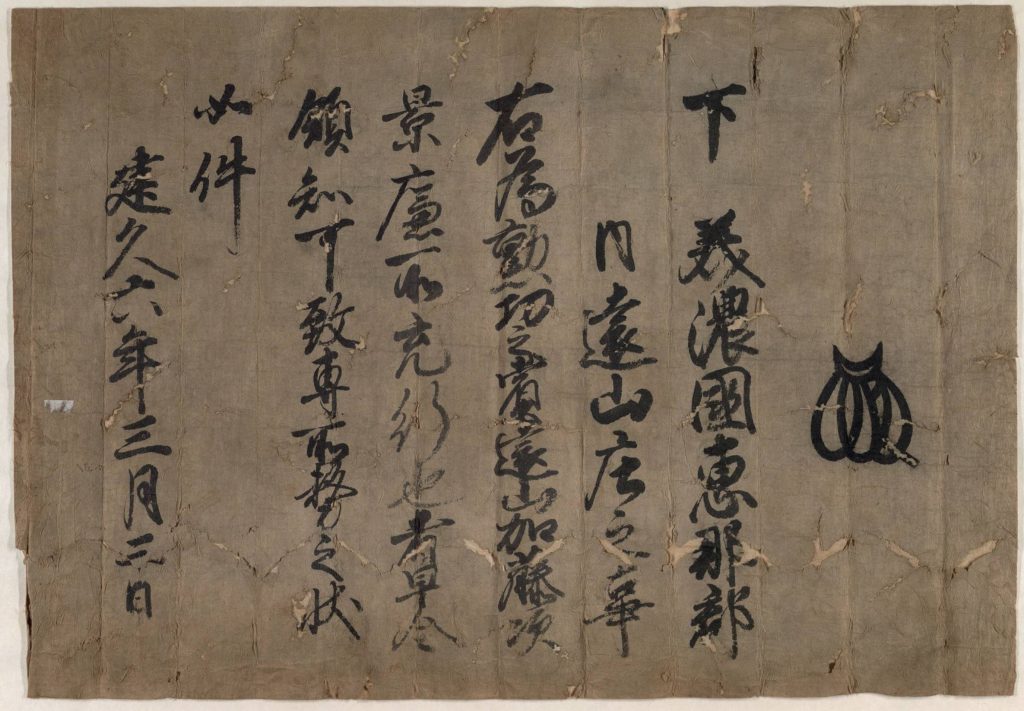 下 美濃國惠那郡
内遠山庄之事
右為勲功之賞遠山加藤次
景廉所充行也者早令
領知可致専所務之状
如件
建久六年三月三日